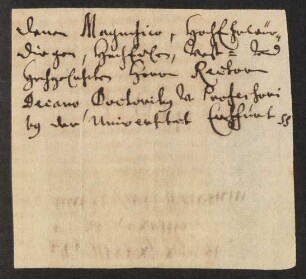 Denen Magnifico, HochEhrwür-
digen, Hochedlen, und
Hochgelehrten Herrn Rectori
Decano Doctoribus Professori
bus der Universitet Erffurt